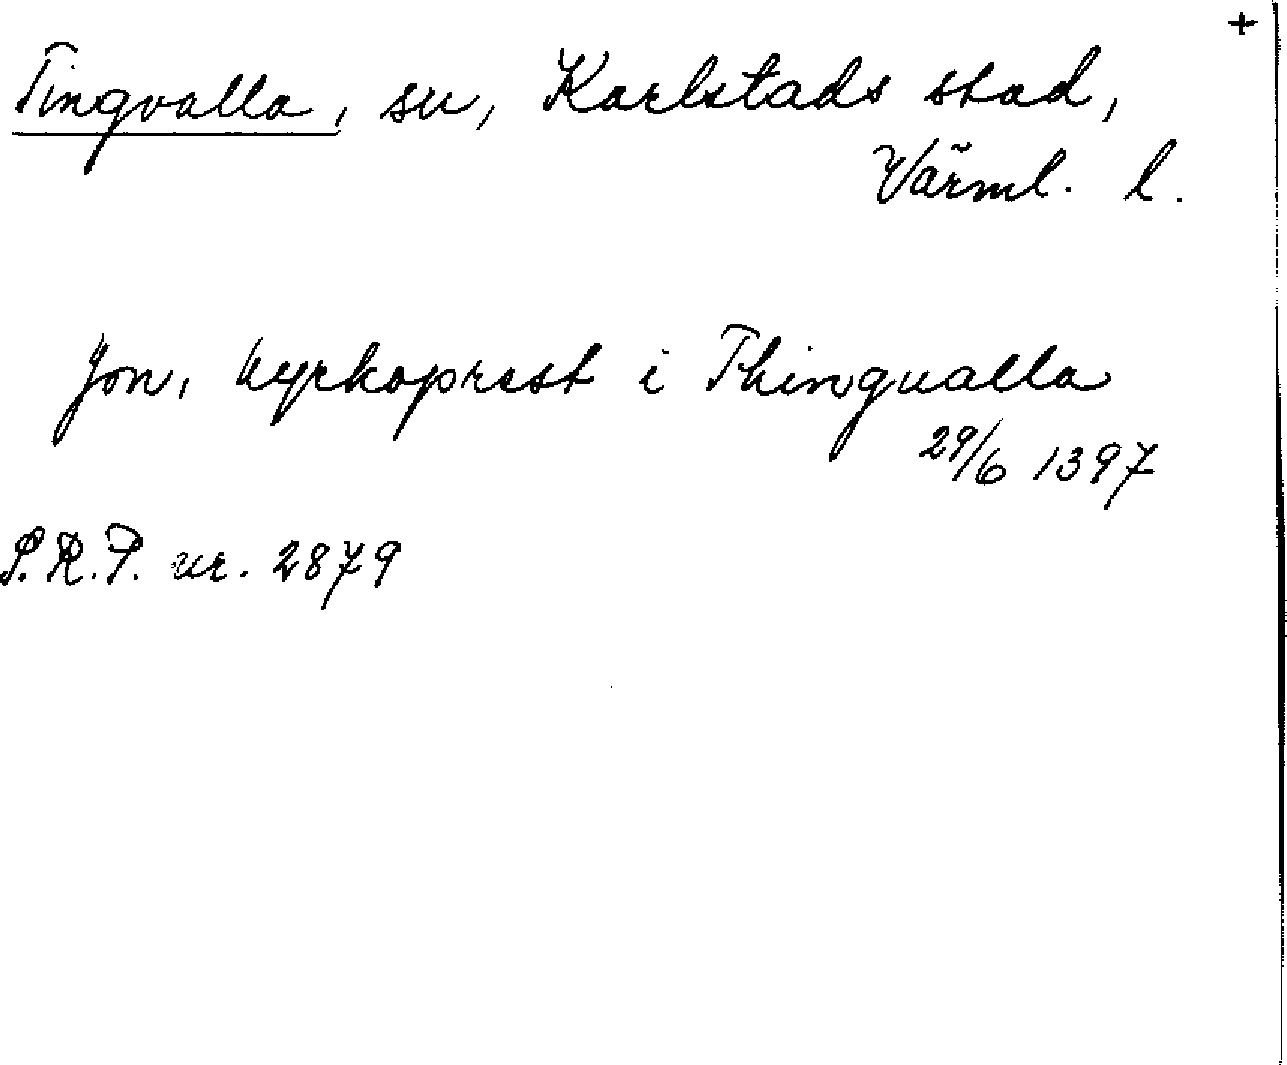 +
Tingvalla, sn, Karlstads stad,
Värml. l.
Jon, kyrkoprest i Thingualla
29/6 1397
S.R.P. nr. 2879